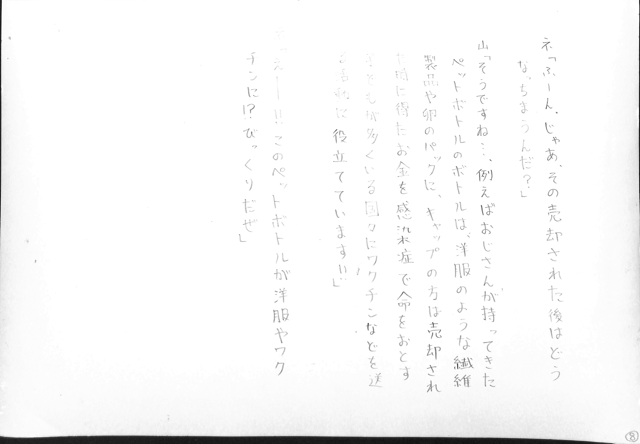 ネ「ふーん、じゃあ、その売却された後はどう
なっちまうんだ？」
山「そうですね…、例えばおじさんが持ってきた
ペットボトルのボトルは、洋服のような繊維
製品や卵のパックに、キャップの方は売却され
た時に得たお金を感染症で命をおとす
子どもが多くいる国々にワクチンなどを送
る活動に役立てています!!」
「えーー!!このペットボトルが洋服やワク
チンに!?びっくりだぜ」
8